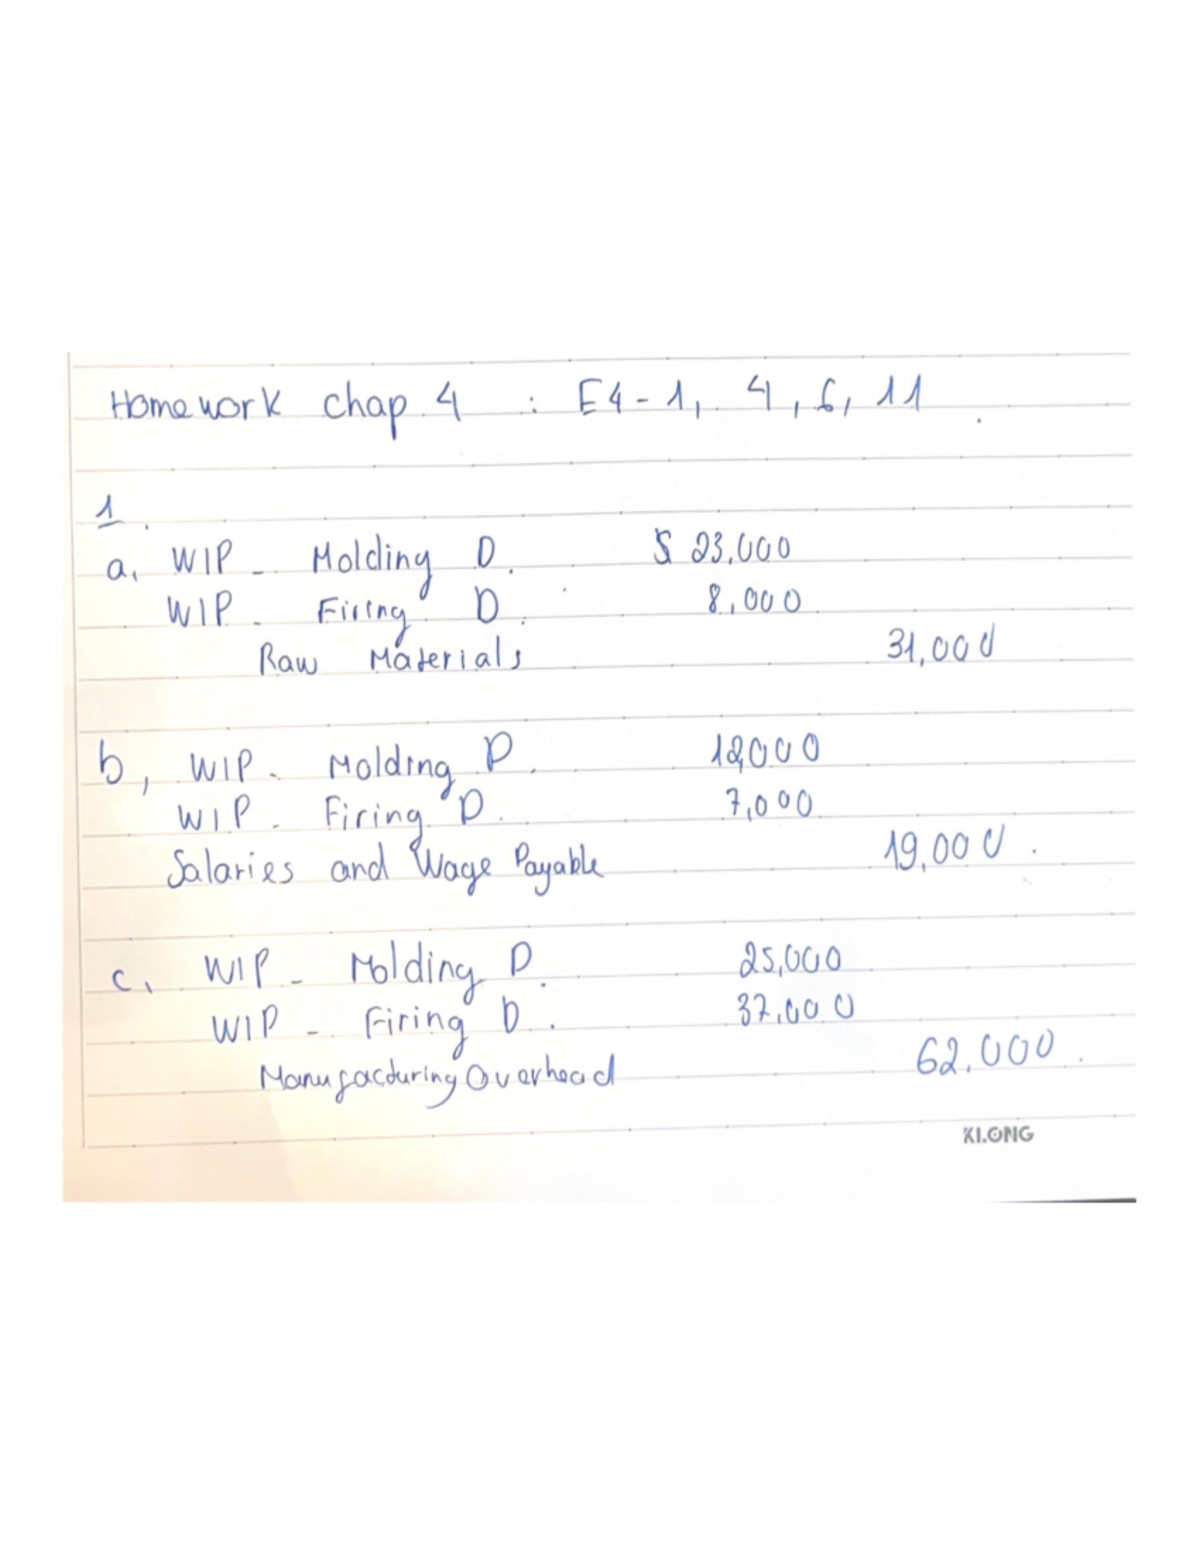 Homework chap 4 : E4-1, 4, 6, 11
1.
a, WIP - Molding D. $ 23,000
WIP - Firing D. 8,000
Raw Materials 31,000
b, WIP - Molding D. 12,000
WIP - Firing D. 7,000
Salaries and Wage Payable 19,000.
c, WIP - Molding D. 25,000
WIP - Firing D. 37,000
Manufacturing Overhead 62,000.
KLONG